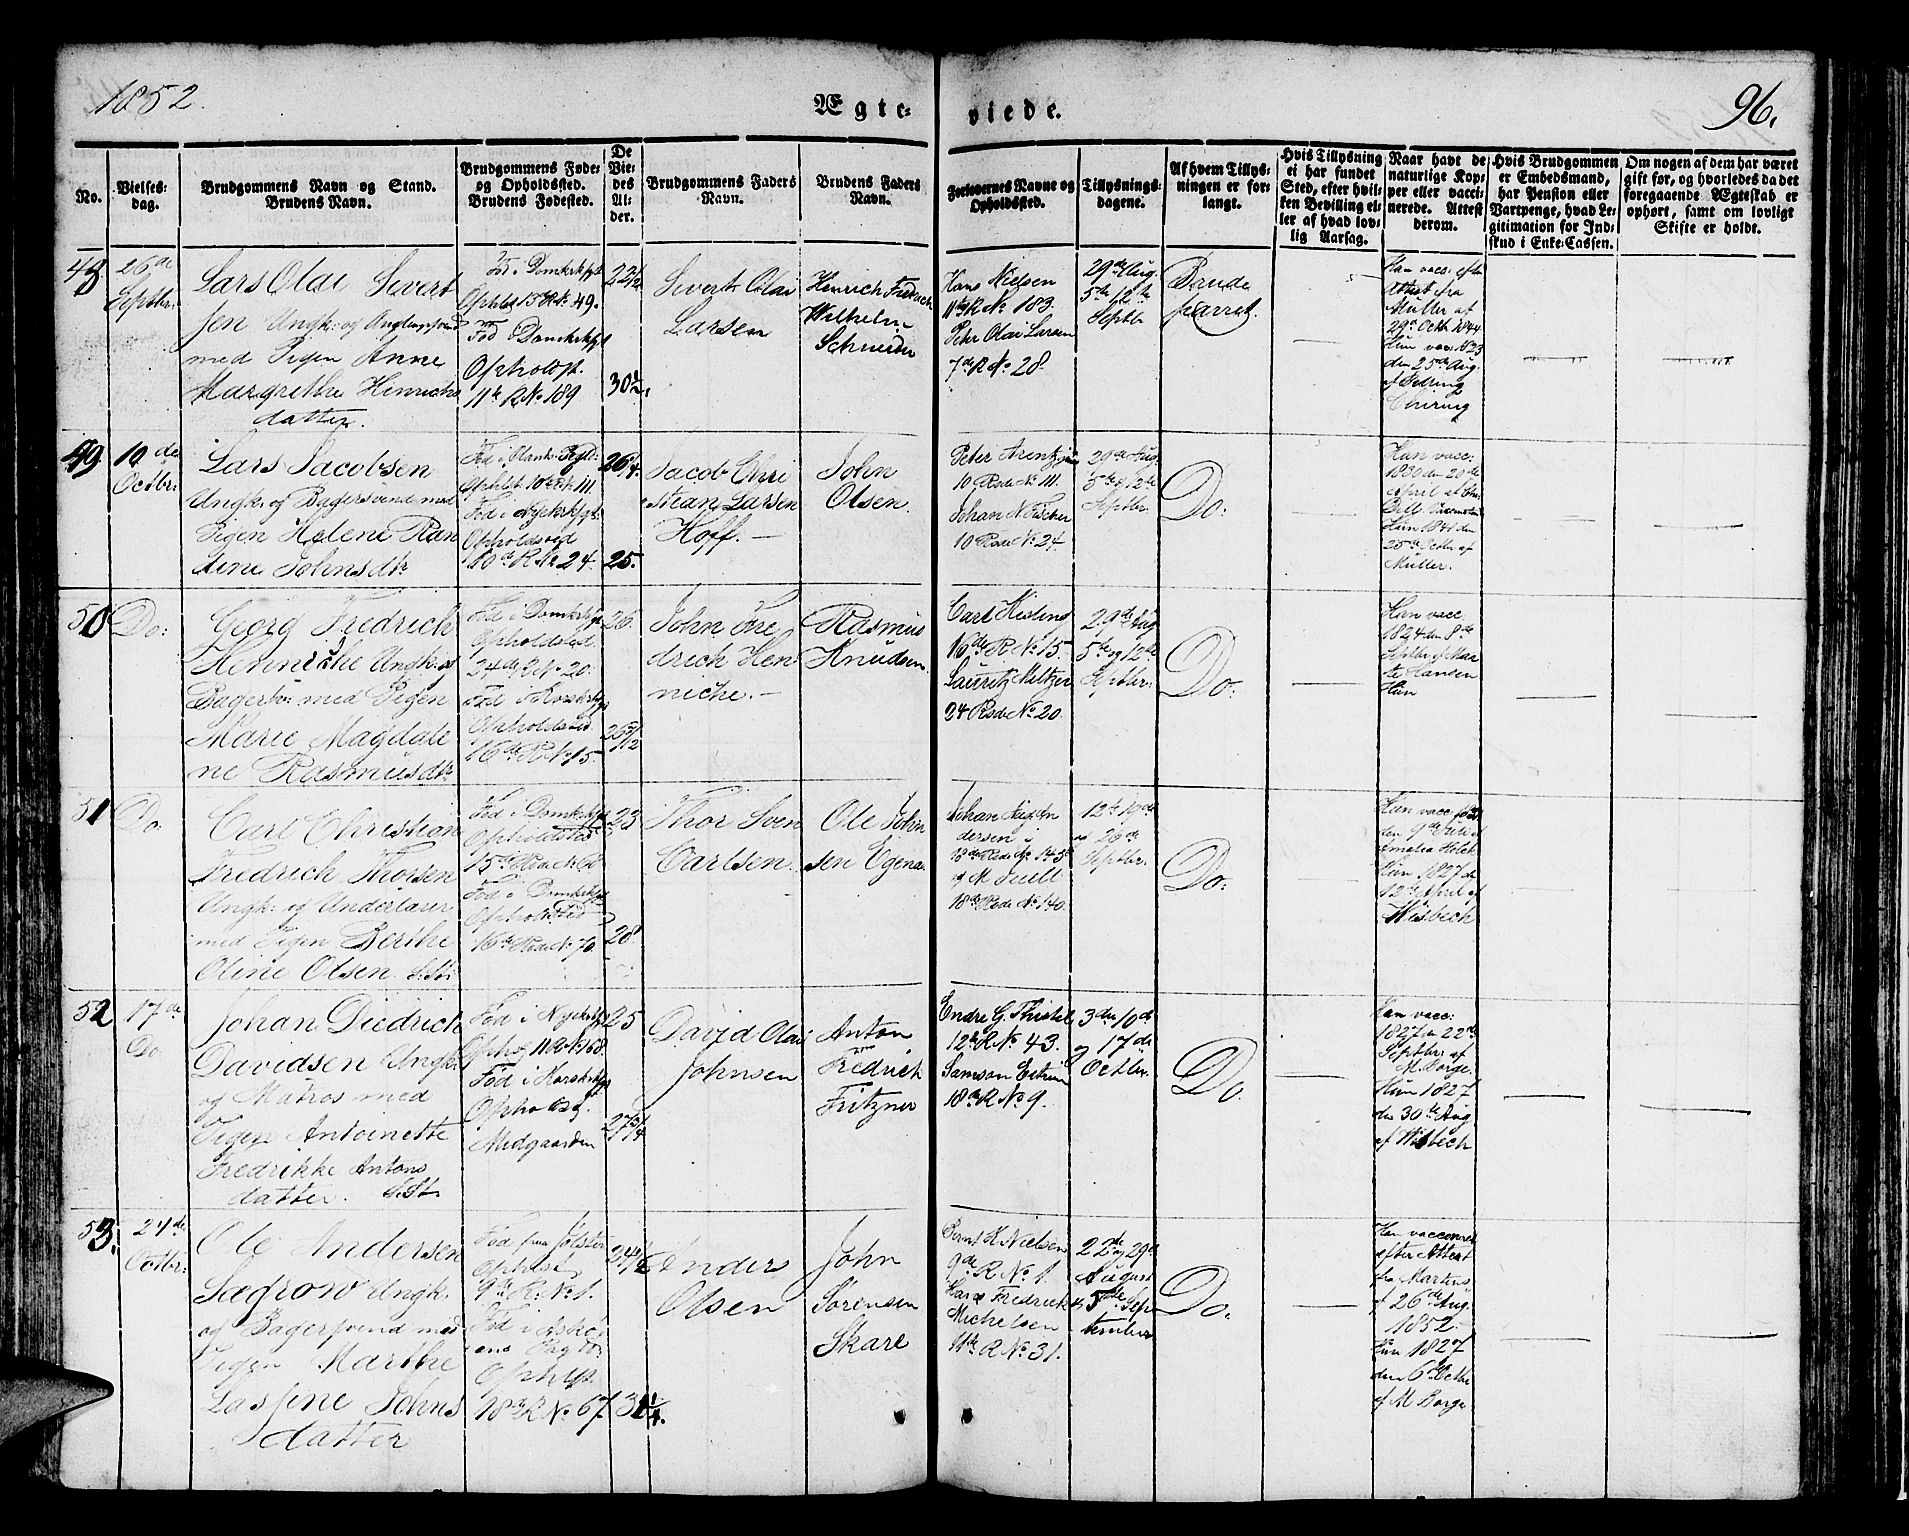 1852.
Ægte-
viede.
96.
No.
Vielses-
dag.
Brudgommens Navn og Stand.
Brudens Navn.
Brudgommens Føde-
og Opholdssted.
Brudens Fødested.
De
Vie-
des
Al-
der.
Brudgommens Faders
Navn.
Brudens Faders
Navn.
Forlovernes Navne og
Opholdssted.
Tillysnings-
dagene.
Af hvem Tillys-
ningen er for-
langt.
Hvis Tillysning
ei har fundet
Sted, efter hvil-
ken Bevilling el-
ler af hvad lov-
lig Aarsag.
Naar havt de
naturlige Kop-
per eller vacci-
nerede. Attest
derom.
Hvis Brudgommen
er Embedsmand,
har Pension eller
Vartpenge, hvad Le-
gitimation for Ind-
skud i Enke-Cassen.
Om nogen af dem har været
gift før, og hvorledes da det
foregaaende Ægteskab er
ophørt, samt om lovligt
Skifte er holdt.
48
26de
Septbr:
Lars Olai Sivert
sen Ungk: og
med Pigen Anne
Margrethe Henrichs
datter.
Fød i Domkrkspt
Ophldst 15 R No. 49.
Fød i Domkrkspt
Opholdsst.
11te R No 189
30½.
Sivert Olai
Larsen
Heinrich Fredrich
Wilhelm
Schneider
Hans Nielsen
11te R No. 183.
Peter Olai Larsen
7de R No. 28.
29de Aug.
5te 12te
Septbr
Brude
parret.
Han vacc: efter
Attest fra
Müller af
29de Octb 1844
Hun vacc
den 25de Aug.
af
49.
10de
Octbr:
Lars Jacobsen
Ungk: og Bagersvend med
Pigen Helene Ran
dine Johnsdtr
Ophldst 10de R No. 111.
Fød i Nykrkspt:
Opholdssted
10de R No. 24.
26¼.
25.
Jacob Chri
stian Larsen
Hoff. —
John
Olsen.
Peter Arentz
10 Rode No. 111.
Johan N. Fischer
10 Rode No. 24.
29de Aug.
5te 12te
Septbr.
Do:
Han vacc:
1830 den 20de
April af
Hun 1841 den
25de Octbr af
Müller.
50
Do:
Georg Fredrich
Henniche Ungk: og
Bager med Pigen
Marie Magdale
ne Rasmusdtr
Fød i Domkrkspt
Opholdssted
24de R No. 20.
Fød i Korskrkspt
Opholdssted.
16de R No 15.
26.
John Fre
drich Hen
niche. —
Rasmus
Knudsen.
Carl
16de R No. 15.
Lauritz Meltzer
24 Rode No. 20.
29de Aug
5te og 12te
Septbr:
Do:
Han vacc
1824 den 8de
Septbr af
Hansen
Hun
51
Do:
Carl Christian
Fredrich Thorsen
Ungk: og
med Pigen Berthe
Oline Olsen.
Fød i Domkrkspt
Opholdssted
15de Rode No
Fød i Domkrkspt
Opholdssted
16de Rode No. 70.
23
28
Thor Sven
Carlsen.
Ole John
sen
Johan Aug. An
dersen i
18de Rode No. 143
og M Juell
18de Rode No. 140.
12te 19de
og 26de
Septbr.
Do:
Han vacc
den 9de
Amalia Holck
Hun 1827 d
12te April af
Wisbech
52
17de
Do
Johan Diedrich
Davidsen Ungk:
og Matros med
Pigen Antoinette
Fredrikke Antons
datter.
Fød i Nykrkspt
Ophg 11 R No 168.
Fød i Korskrkspt
Opholdsg.
Midgaarden
25
27¾
David Olai
Johnsen
Anton
Fredrich
Fritzner
Endre G. Thistel
12te R No. 43.
Samson
18de R No 9.
3die 10de
og 17de
Octbr.
Do.
Han vacc:
1827 22de
Septbr: af
M. Borge.
Hun 1827
den 30te Aug
af Wisbech
53.
24de
Octbr:
Ole Andersen
Sægrow Ungk.
og Bagersvend med
Pigen Marthe
Johns
datter
Fød fra Jølster
9de R No 1.
Fød i Askø
ens
18de R No 67.
31¼.
Ander
Olsen
John
Sørensen
Skare
Bernt K Nielsen
9de R No 1.
Hans Fredrick
Michelsen
11te R No. 31.
22de og 29de
August
og 5te Sep
tember
Do:
Han vaccineret
efter Attest
fra Martens
af 26de Aug.
1852.
Hun 1827
den 6te Octbr
af M Borge